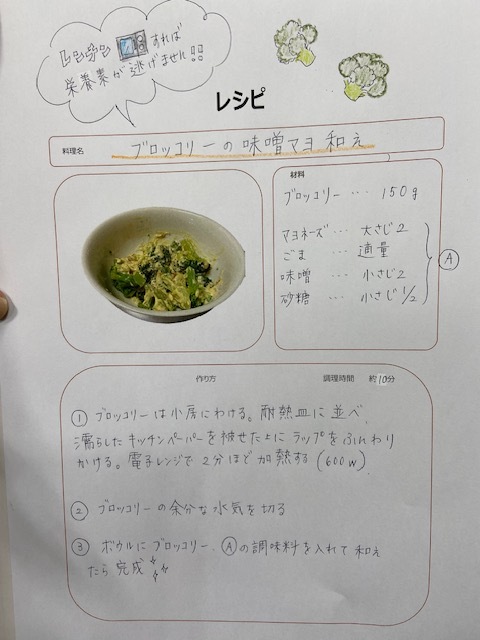 レンジ すれば
栄養素が逃げません!!
レシピ
料理名 ブロッコリーの味噌マヨ和え
材料
ブロッコリー … 150g
マヨネーズ … 大さじ2
ごま … 適量
味噌 … 小さじ2
砂糖 … 小さじ1/2
Ⓐ
作り方 調理時間 約10分
① ブロッコリーは小房にわける。耐熱皿に並べ、
濡らしたキッチンペーパーを被せた上にラップをふんわり
かける。電子レンジで2分ほど加熱する(600W)
② ブロッコリーの余分な水気を切る
③ ボウルにブロッコリー、Ⓐの調味料を入れて和え
たら完成